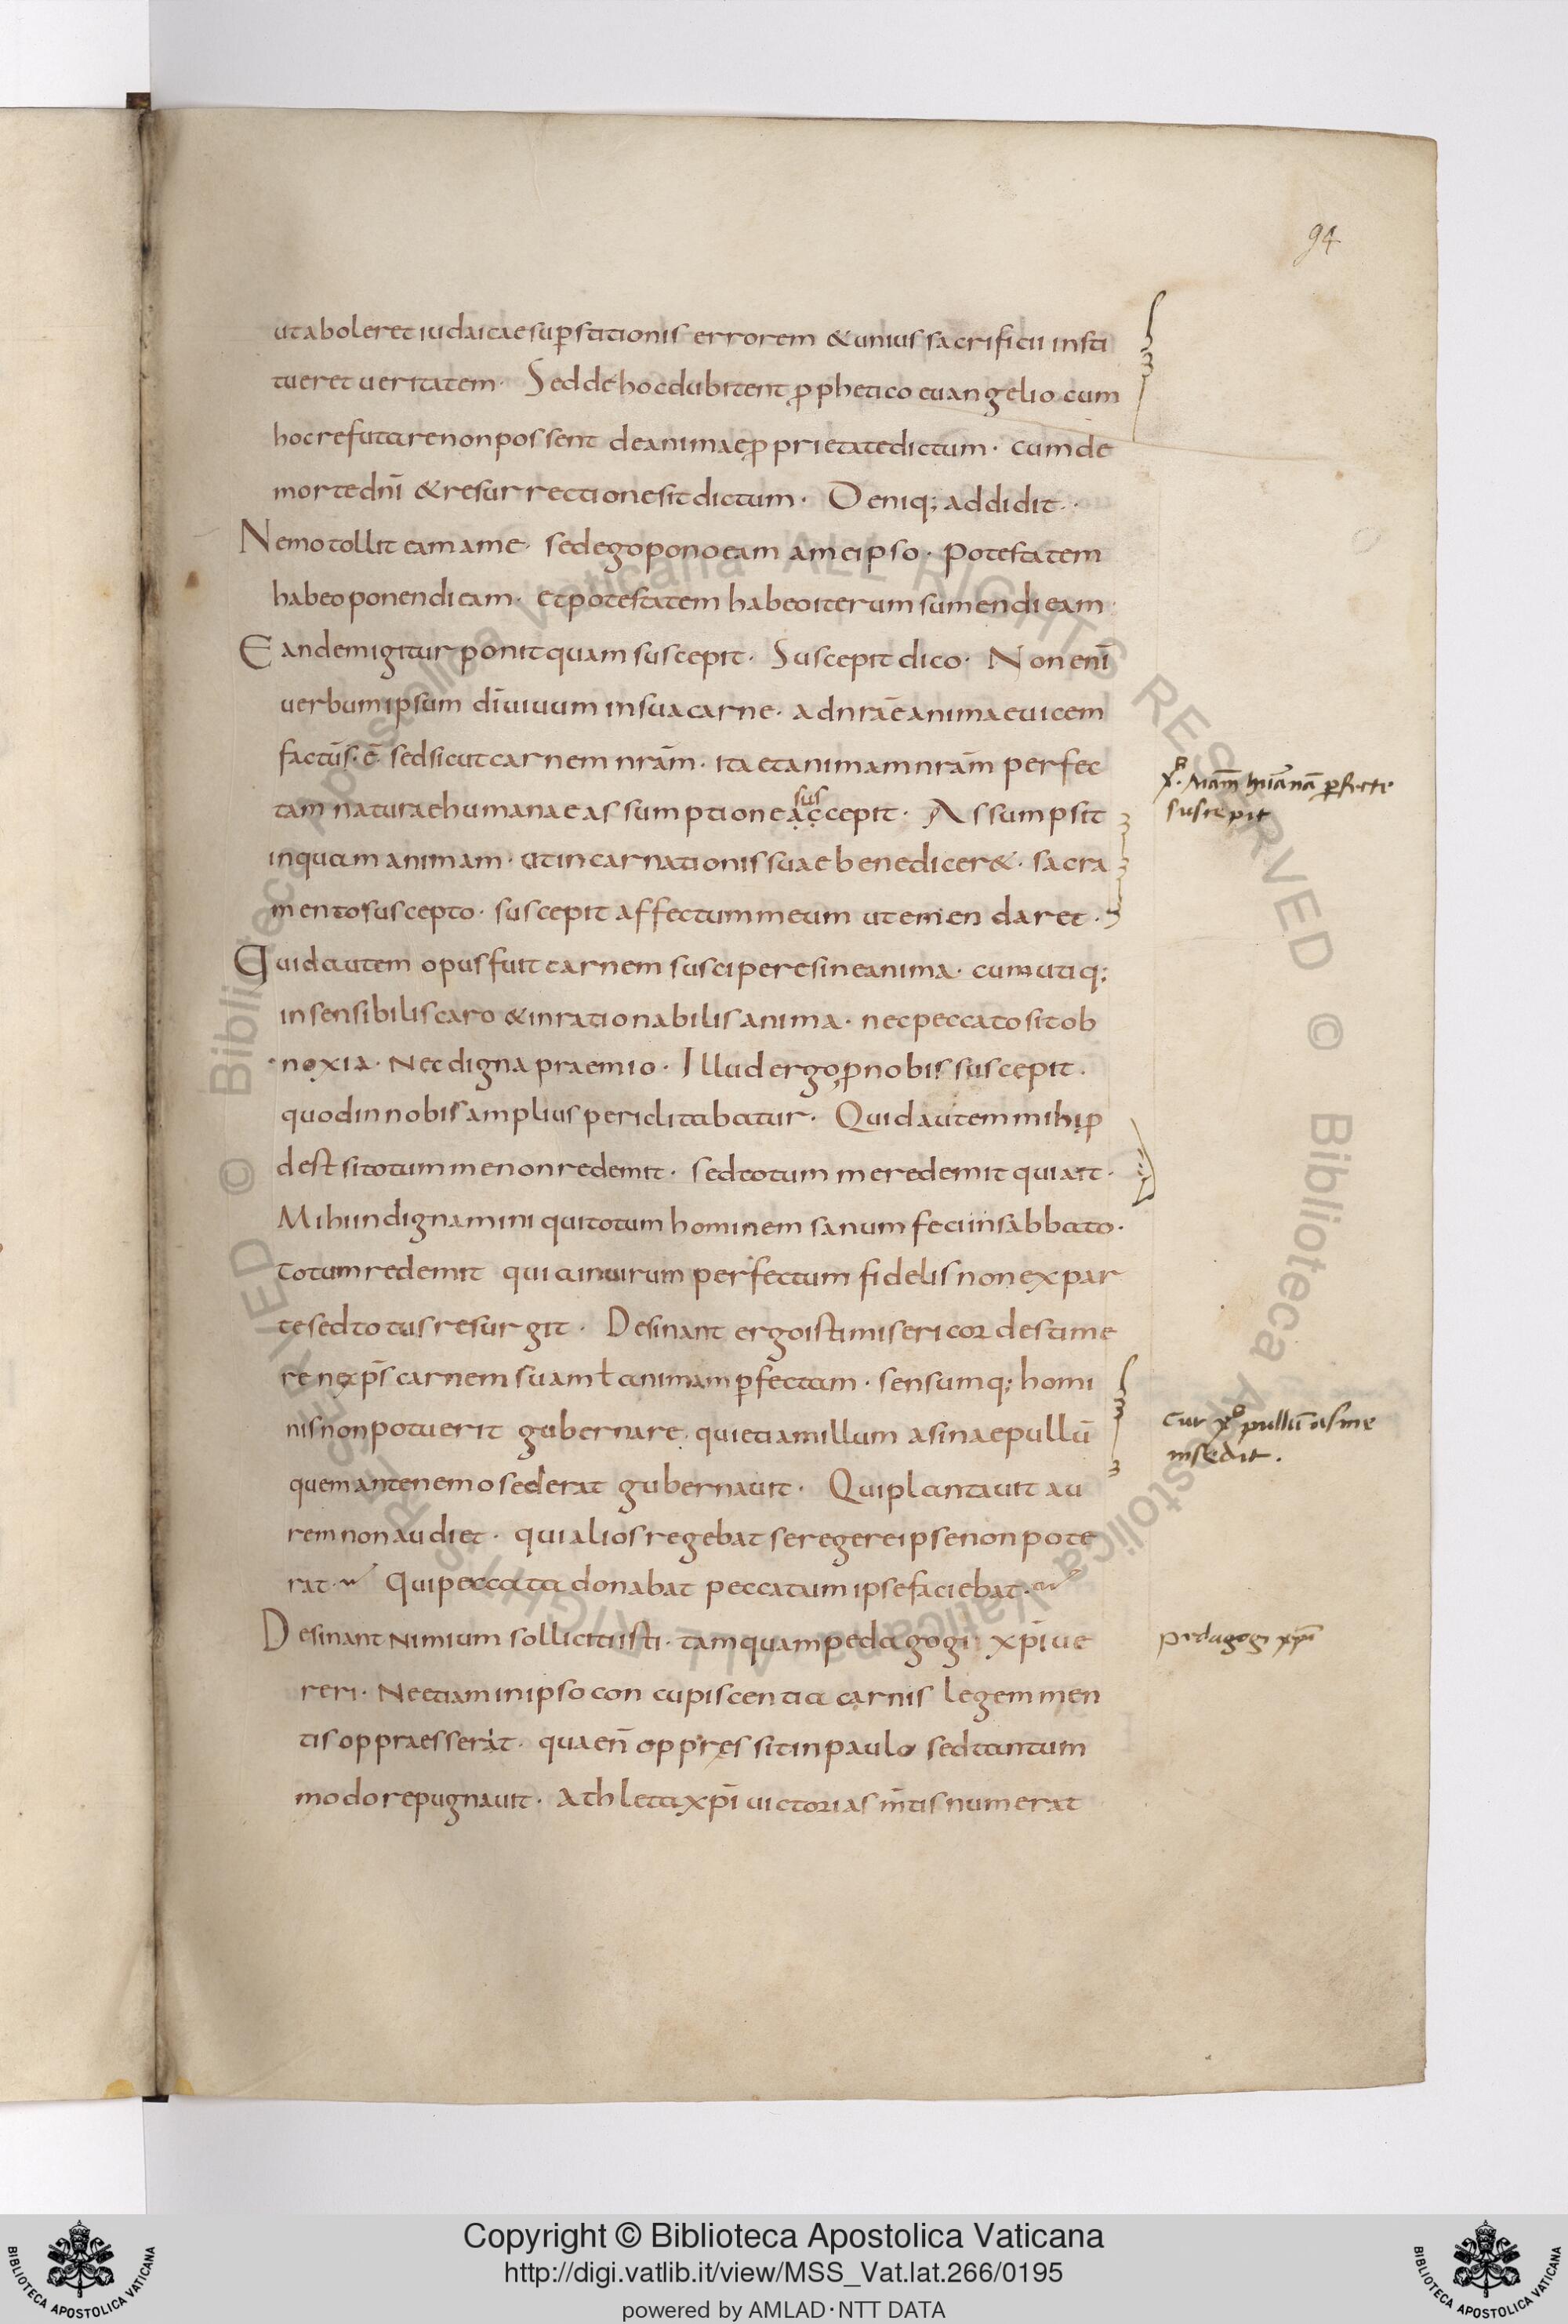 94
ut aboleret iudaicae sup̄stitionis errorem & unius sacrificii insti
tueret ueritatem · Sed de hoc dubitent ꝓphetico euangelio cum
hoc refutare non possent de animae ꝓprietate dictum · cum de
morte dn̄i & resurrectione sit dictum · Deniq; addidit ·
Nemo tollit eam a me · sed ego pono eam a me ipso · potestatem
habeo ponendi eam · et potestatem habeo iterum sumendi eam ·
Eandem igitur ponit quam suscepit · Suscepit dico · Non enī
uerbum ipsum dī uiuum in sua carne · ad nrāē animae uicem
factūs · ē · sed sicut carnem nrām · ita et animam nrām perfec
sus
tam naturae humanae assumptione accepit · Assumpsit
inquam animam · ut incarnationis suae benediceret · sacra
mento suscepto · suscepit affectum meum ut emendaret ·
Quid autem opus fuit carnem suscipere sine anima · cum utiq;
insensibilis caro & inrationabilis anima · nec peccato sit ob
noxia · Nec digna praemio · Illud ergo ꝓ nobis suscepit ·
quod in nobis amplius periclitabatur · Quid autem mihi ꝓ
dest si totum me non redemit · sed totum me redemit qui ait ·
Mihi indignamini qui totum hominem sanum feci in sabbato ·
Totum redemit quia in uirum perfectum fidelis non ex par
te sed totus resurgit · Desinant ergo isti misericordes time
re ne xp̄s carnem suam ł animam ꝑfectam · sensumq; homi
nis non potuerit gubernare · qui etiam illum asinae pullū
quem ante nemo sederat gubernauit · Qui plantauit au
rem non audiet · qui alios regebat se regere ipse non pote
rat · Qui peccata donabat peccatum ipse faciebat ·
Desinant nimium solliciti isti · tamquam pedagogi xp̄i ue
reri · Ne etiam in ipso concupiscentia carnis legem men
tis oppraesserat · quae n̄ oppressit in paulo sed tantum
modo repugnauit · Athleta xp̄i uictorias m̄tis numerat
suscepit
cur xp̄s pullū asine
insedit .
pedagogi xp̄i
Copyright © Biblioteca Apostolica Vaticana
http://digi.vatlib.it/view/MSS_Vat.lat.266/0195
powered by AMLAD·NTT DATA
© Biblioteca Apostolica Vaticana ALL RIGHTS RESERVED
© Biblioteca Apostolica Vaticana ALL RIGHTS RESERVED
BIBLIOTECA APOSTOLICA VATICANA
BIBLIOTECA APOSTOLICA VATICANA